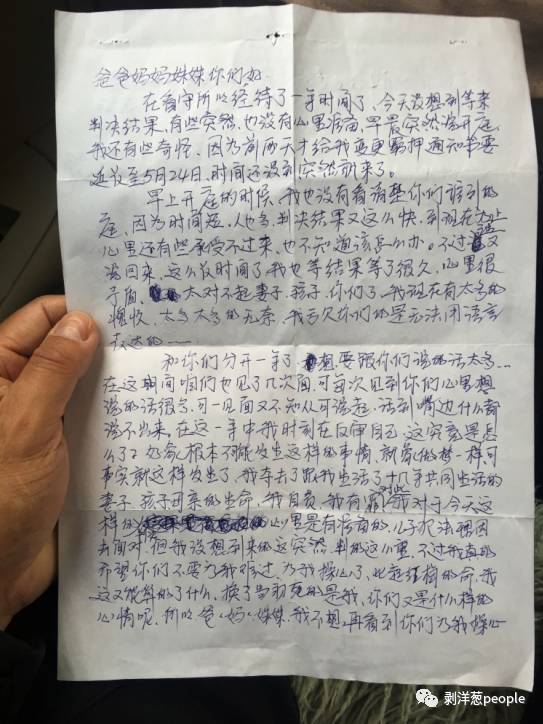 爸爸妈妈妹妹你们好
在看守所已经待了一年时间了,今天没想到等来
判决结果,有些突然,也没有心里准备,早晨突然说开庭
我还有些奇怪,因为前两天才给我变更羁押通知书要
延长至5月24日,时间还没到突然就来了。
早上开庭的时候,我也没有看清楚你们谁到的
庭,因为时间短,人也多,判决结果又这么快,到现在为止
心里还有些承受不过来,也不知道该怎么办。不过话又
说回来,这么长时间了我也等结果等了很久,心里很
矛盾 太对不起妻子、孩子、你们了,我现在有太多的
悔恨,太多太多的无奈,我亏欠你们的是无法用语言
表达的……
和你们分开一年了 想要跟你们说的话太多…
在这期间咱们也见了几次面,可每次见到你们心里想
说的话很多,可一见面又不知从何说起,话到嘴边什么都
说不出来,在这一年中我时刻在反审自己,这究竟是怎
么了?好像根本不可能发生这样的事情,就象做梦一样可
事实就这样发生了,我夺去了跟我生活了十几年共同生活的
妻子,孩子母亲的生命,我自责,我有罪,我对于今天这
样的 心里是有准备的,儿子犯法理因
去面对,但我没想到来的这突然,判的这么重,不过我真的
希望你们不要为我难过,为我操心了,比起 的命,我
这又能算的了什么,换了当初死的是我,你们又是什么样的
心情呢,所以爸、妈、妹妹,我不想再看到你们为我操心
剥洋葱people